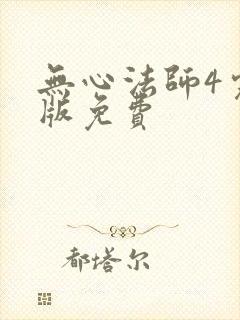 無心法師4完
版免費
都塔尔